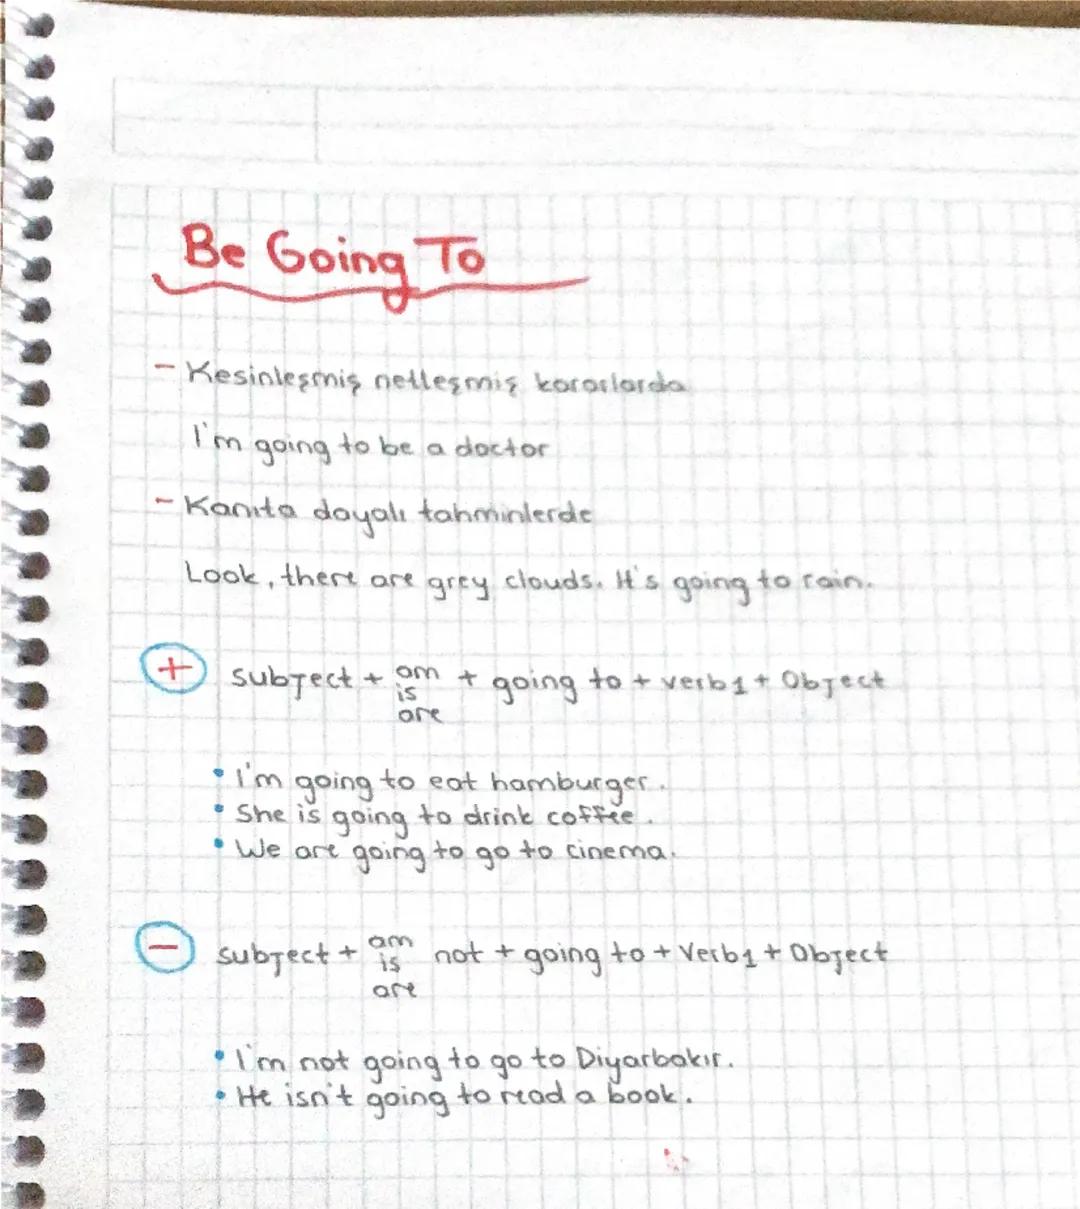 Be Going To
- Kesinleşmiş netleşmiş kararlarda
I'm going to be a doctor
- Kanıta dayalı tahminlerde
Look, there are grey clouds. It's going to rain.
+ subject + am + going to + verb1 + Object
is
are
• I'm going to eat hamburger.
• She is going to drink coffee.
• We are going to go to cinema.
- subject + am not + going to + Verb1 + Object
is
are
• I'm not going to go to Diyarbakır.
• He isn't going to read a book.